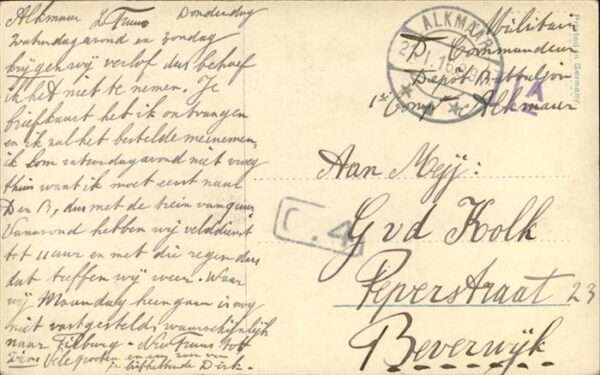 Alkmaar L Truus Donderdag
Zaturdagavond en zondag
krijgen wij verlof dus behoef
ik het niet te nemen. Je
briefkaart heb ik ontvangen
en ik zal het bestelde meenemen,
ik kom zaturdagavond niet vroeg
thuis want ik moet eerst naar
Den B, dus met de trein van
Vanavond hebben wij velddienst
tot 11 uur en met die regen dus
dat treffen wij weer. Waar
wij Maandag heengaan is nog
niet vastgesteld, waarschijnlijk
naar Tilburg. Nu Truus tot
Ziens Vele groeten en een van
je liefhebbende Dirk.
ALKMAAR
Militair
D. Commandeur
Depot Bataljon
1e Comp Alkmaar
Printed in Germany
C. 4
Aan Mejj:
G vd Kolk
Peperstraat 23
Beverwijk